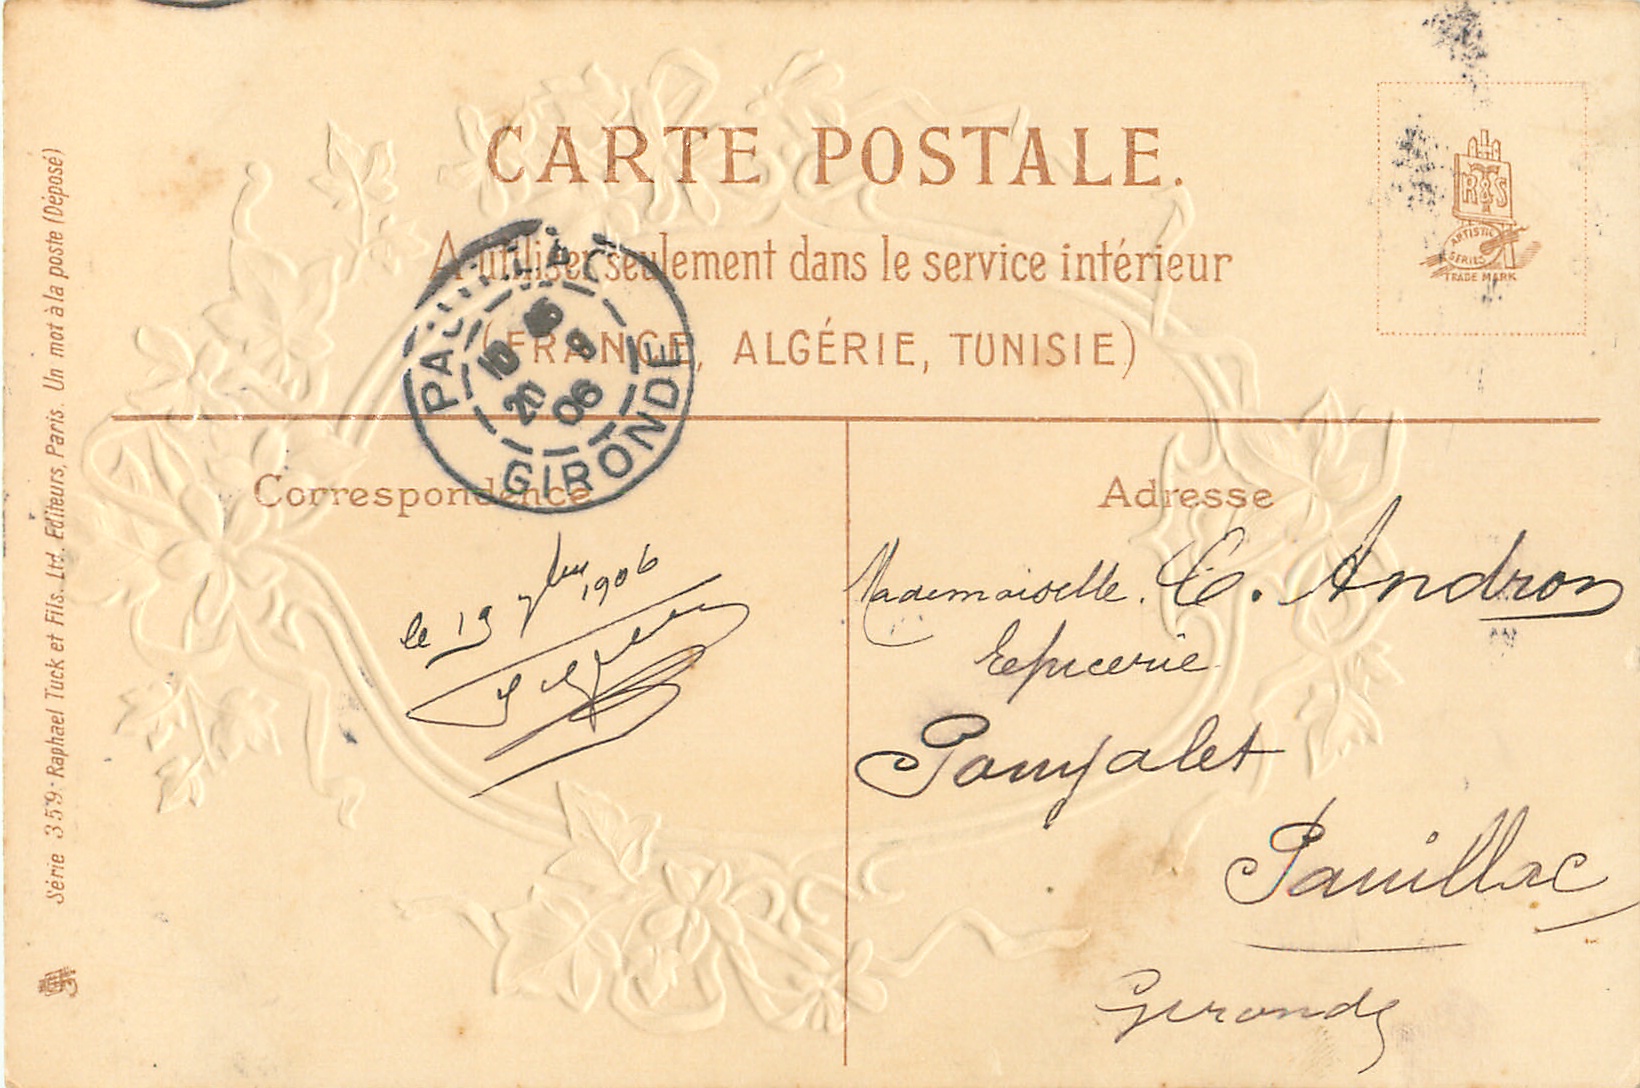 CARTE POSTALE.
A utiliser seulement dans le service intérieur
(FRANCE, ALGÉRIE, TUNISIE)
R&S
ARTISTIC
SERIES
TRADE MARK
PAUILLAC
10
20 9
06
GIRONDE
Correspondence
le 19 7bre 1906
Adresse
Mademoiselle. C. Andron
Epicerie
Pouyalet
Pauillac
Gironde
Série 359. Raphael Tuck et Fils. Ltd. Editeurs, Paris. Un mot à la poste (Déposé)